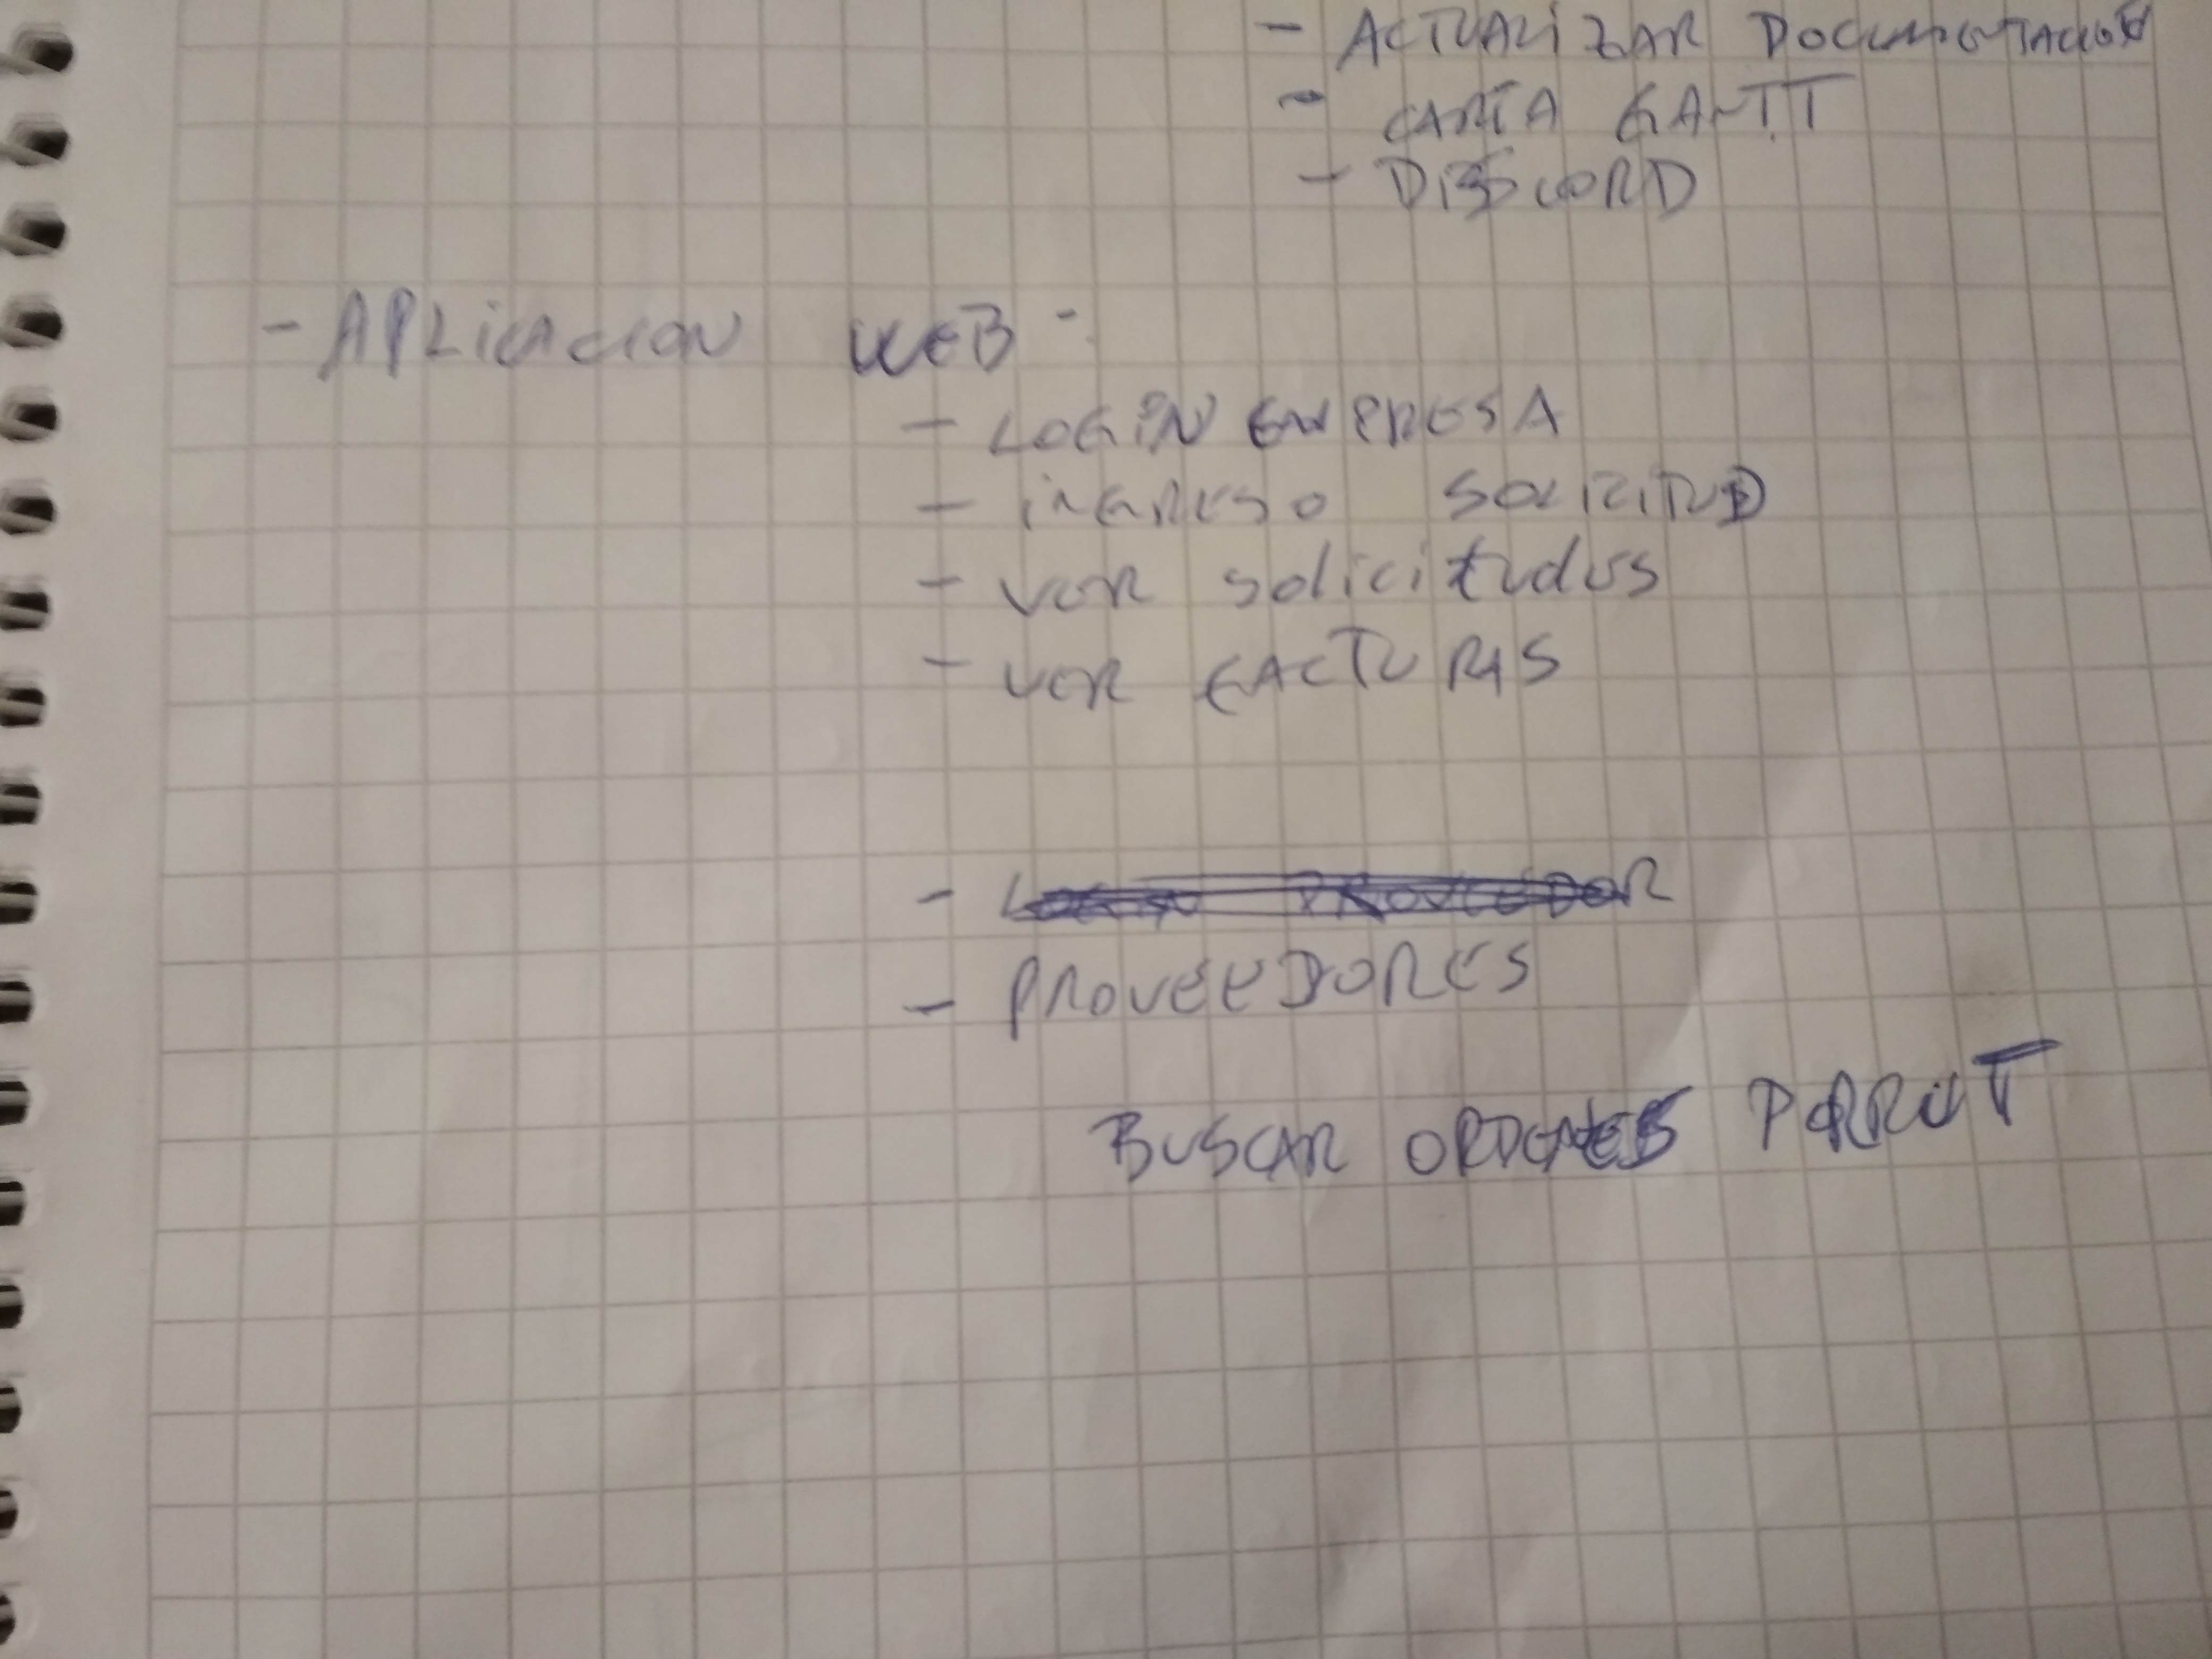 - ACTUALIZAR DOCUMENTACION
- CARTA GANTT
- DISCORD
- APLICACION WEB -
- LOGIN EMPRESA
- INGRESO SOLICITUD
- VER solicitudes
- VER FACTURAS
- LOGIN PROVEEDOR
- PROVEEDORES
BUSCAR ORDENES POR RUT